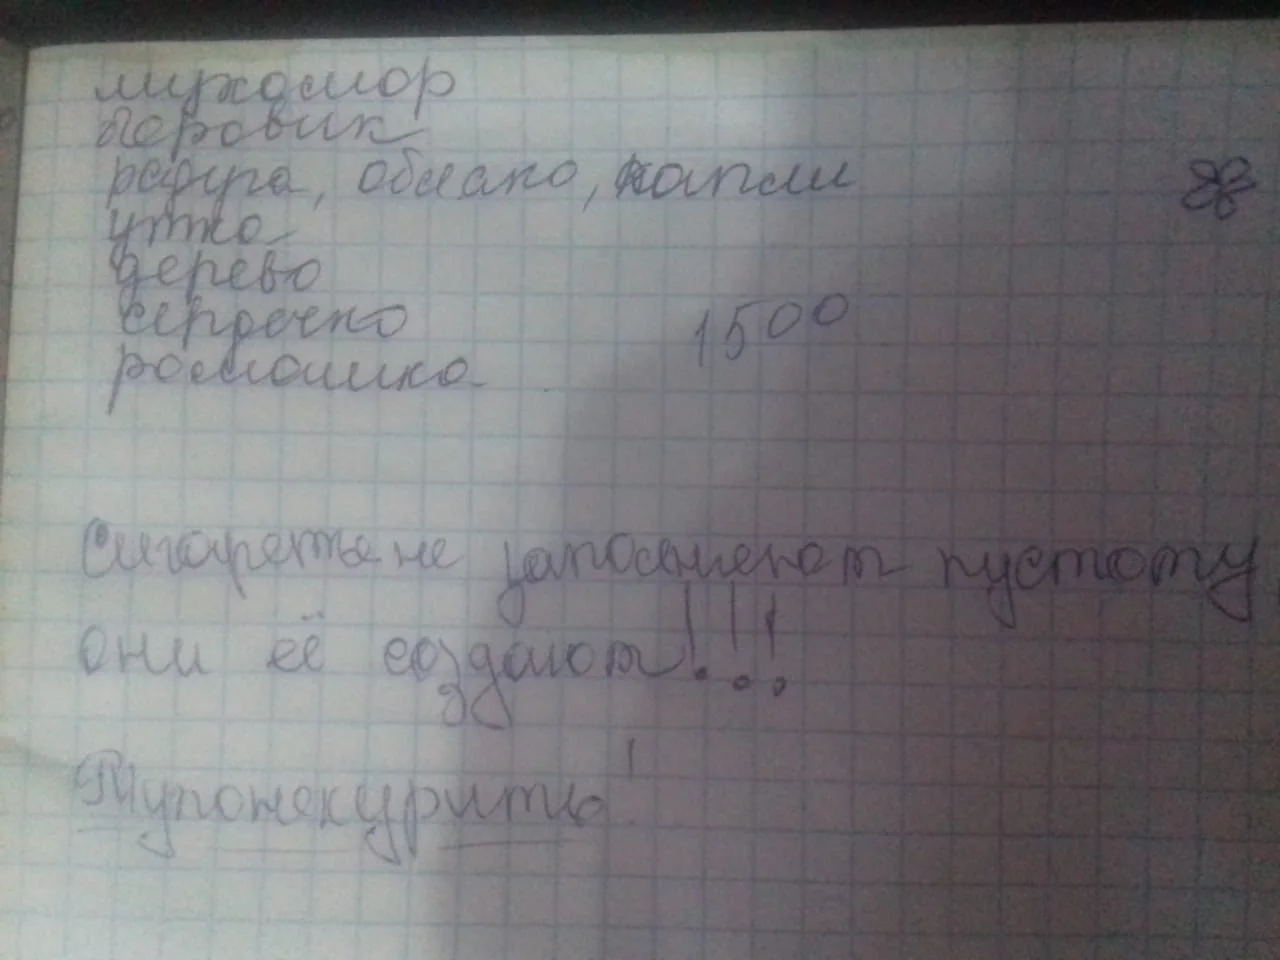 мухомор
боровик
радуга, облако, капли
утка
дерево
сердечко
1500
ромашка
Сигареты не заполняют пустоту
они её создают!!!
Тупонекурить!